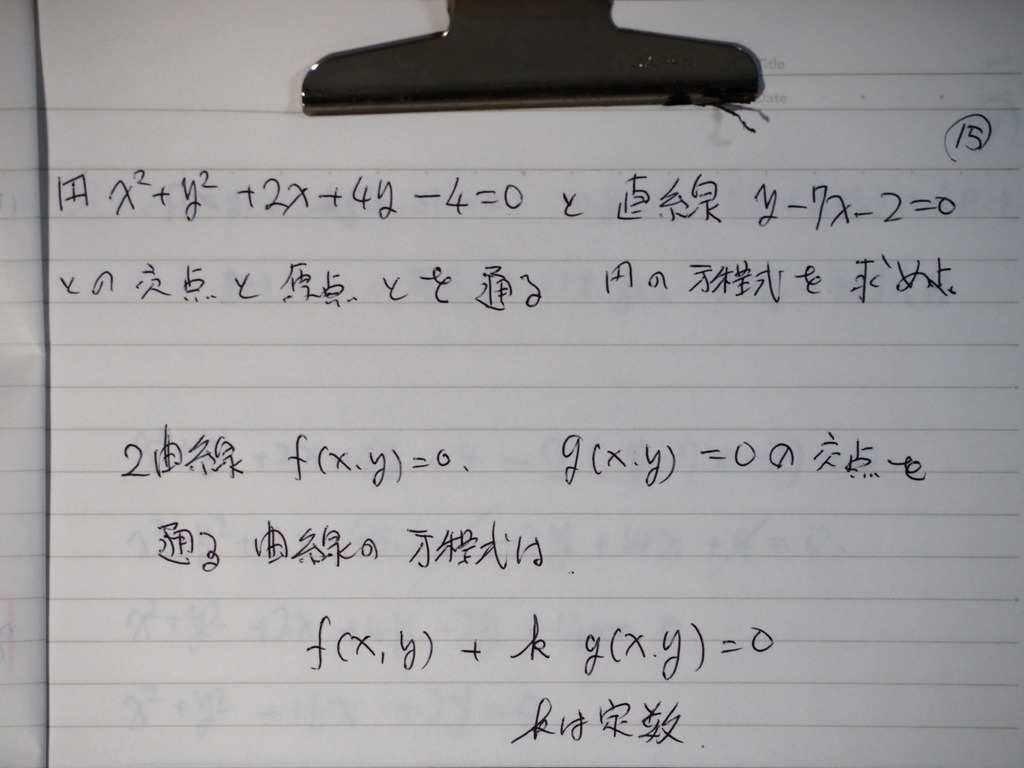 Title
Date
⑮
円 x²+y²+2x+4y-4=0 と 直線 y-7x-2=0
との交点と原点とを通る 円の方程式を求めよ。
2曲線 f(x,y)=0、 g(x.y)=0の交点を
通る曲線の方程式は
f(x,y) + k g(x.y)=0
kは定数